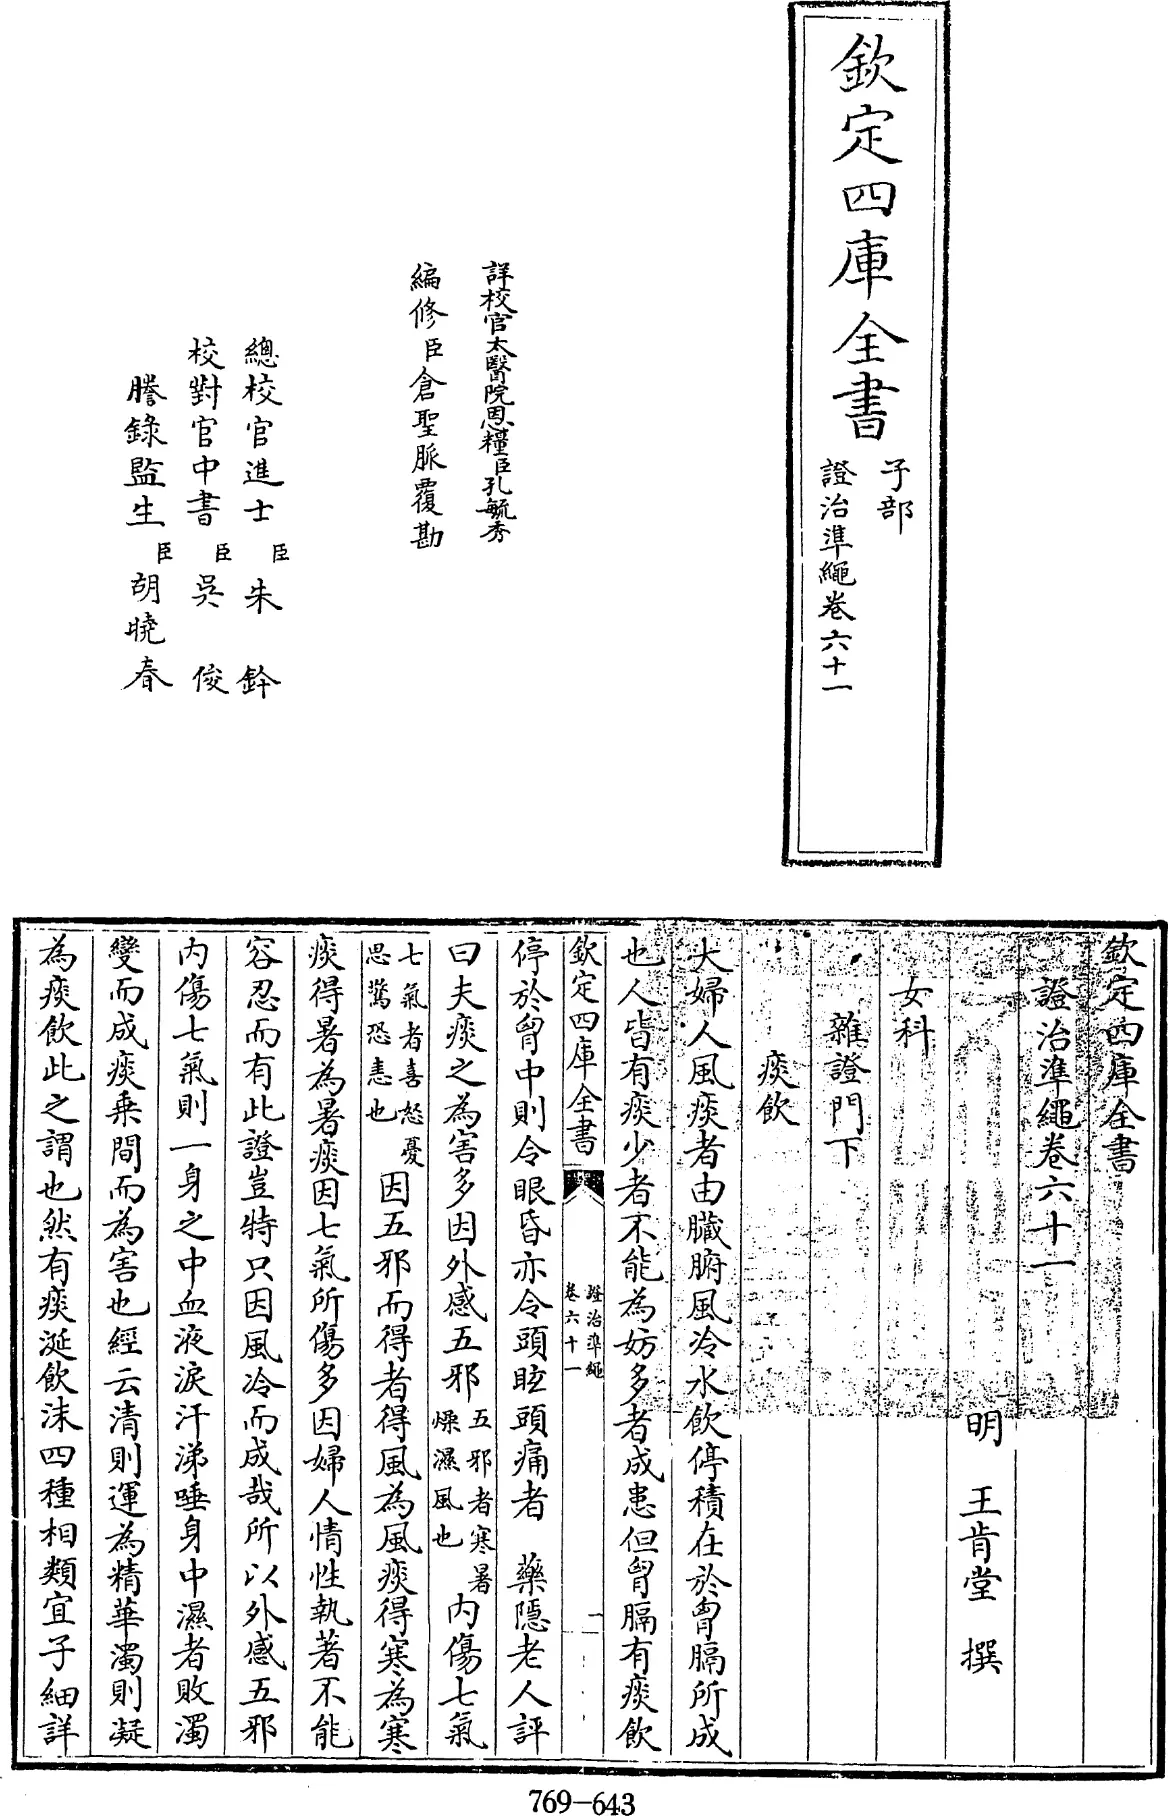 欽定四庫全書
子部
證治準繩卷六十一
詳校官太醫院恩糧臣孔毓秀
編修臣倉聖脈覆勘
總校官進士臣朱鈐
校對官中書臣吳俊
謄錄監生臣胡曉春
欽定四庫全書
證治準繩卷六十一
明 王肯堂 撰
女科
雜證門下
痰飲
大婦人風痰者由臟腑風冷水飲停積在於胷膈所成
也人皆有痰少者不能為妨多者成患但胷膈有痰飲
欽定四庫全書
證治準繩
卷六十一
一
停於胷中則令眼昏亦令頭眩頭痛者 藥隱老人評
曰夫痰之為害多因外感五邪五邪者寒暑燥濕風也內傷七氣
七氣者喜怒憂思驚恐恚也因五邪而得者得風為風痰得寒為寒
痰得暑為暑痰因七氣所傷多因婦人情性執著不能
容忍而有此證豈特只因風冷而成哉所以外感五邪
內傷七氣則一身之中血液淚汗涕唾身中濕者敗濁
變而成痰乗間而為害也經云清則運為精華濁則凝
為痰飲此之謂也然有痰涎飲沫四種相類宜子細詳
769-643